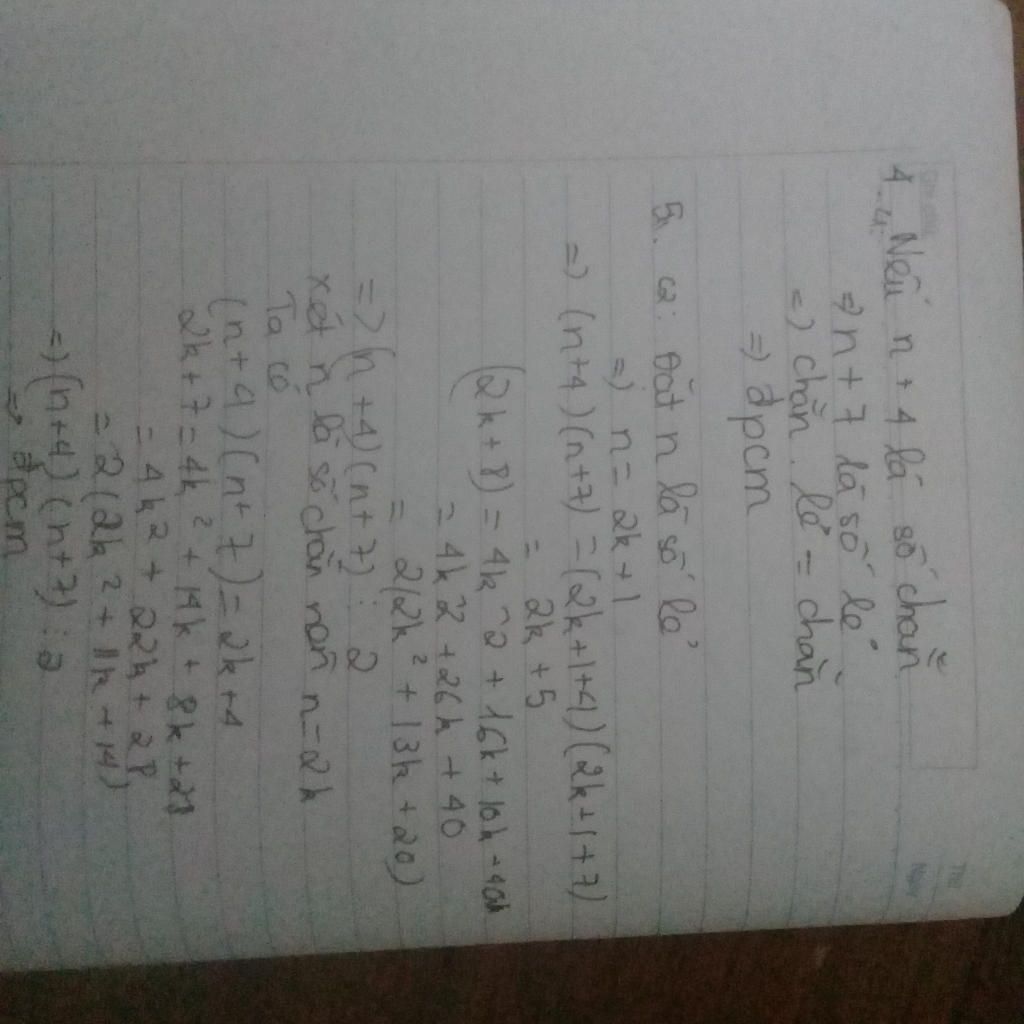 4 Nếu n + 4 là số chẵn
=> n + 7 là số lẻ
=) chẵn . lẻ = chẵn
=) đpcm
5. Đặt n là số lẻ
=) n = 2k+1
=) (n+4)(n+7) = (2k+1+4)(2k+1+7)
= 2k+5
(2k+8) = 4k^2 + 16k + 10k + 40
= 4k^2 + 26k + 40
= 2(2k² + 13k + 20)
=> (n+4)(n+7) : 2
xét n là số chẵn nên n = 2k
Ta có
(n+4)(n+7) = 2k+4
2k+7 = 4k² + 14k + 8k + 28
= 4k² + 22k + 28
= 2(2k² + 11k + 14)
=) (n+4)(n+7) : 2
=> đpcm